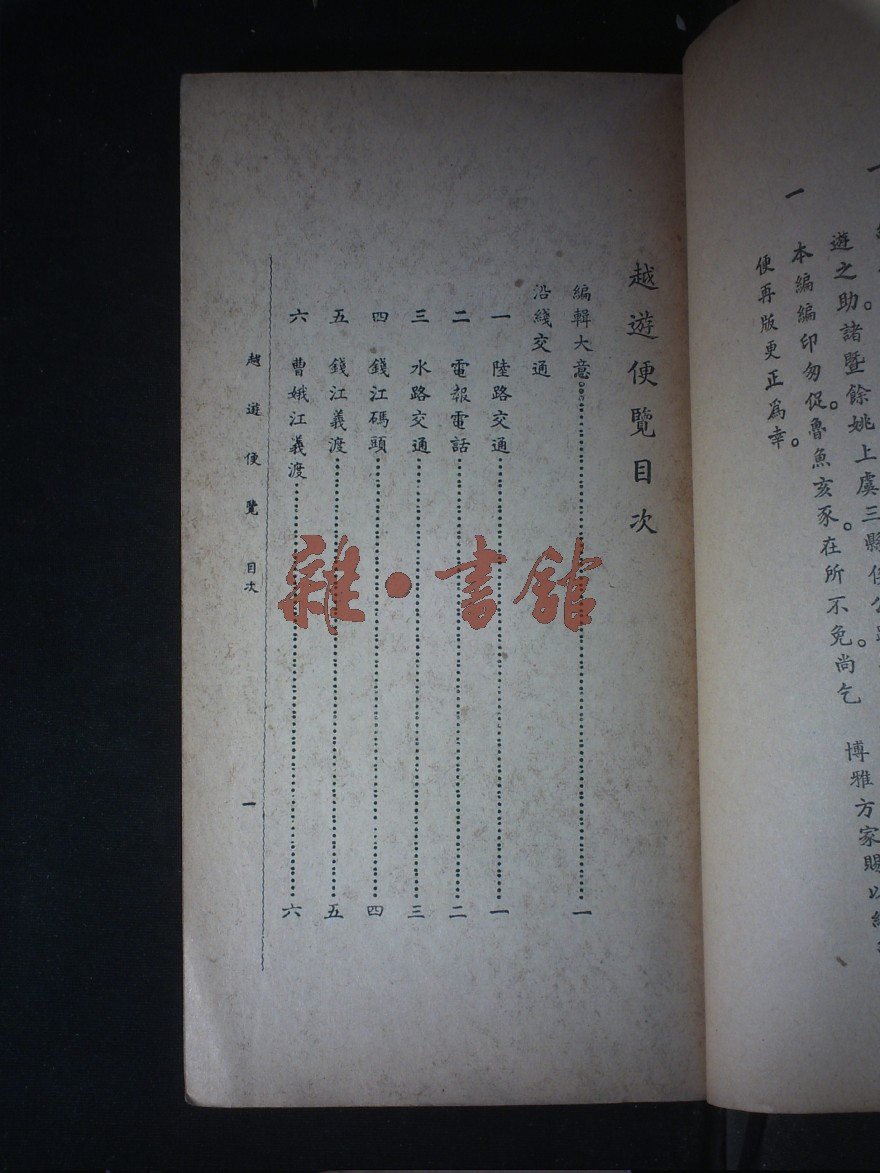 遊之助。諸暨餘姚上虞三縣
一 本編編印匆促。魯魚亥豕。在所不免。尚乞 博雅方家賜以
便再版更正爲幸。
越遊便覽目次
編輯大意 一
沿綫交通
一 陸路交通 一
二 電報電話 二
三 水路交通 三
四 錢江碼頭 四
五 錢江義渡 五
六 曹娥江義渡 六
越遊便覽 目次 一
雜·書館